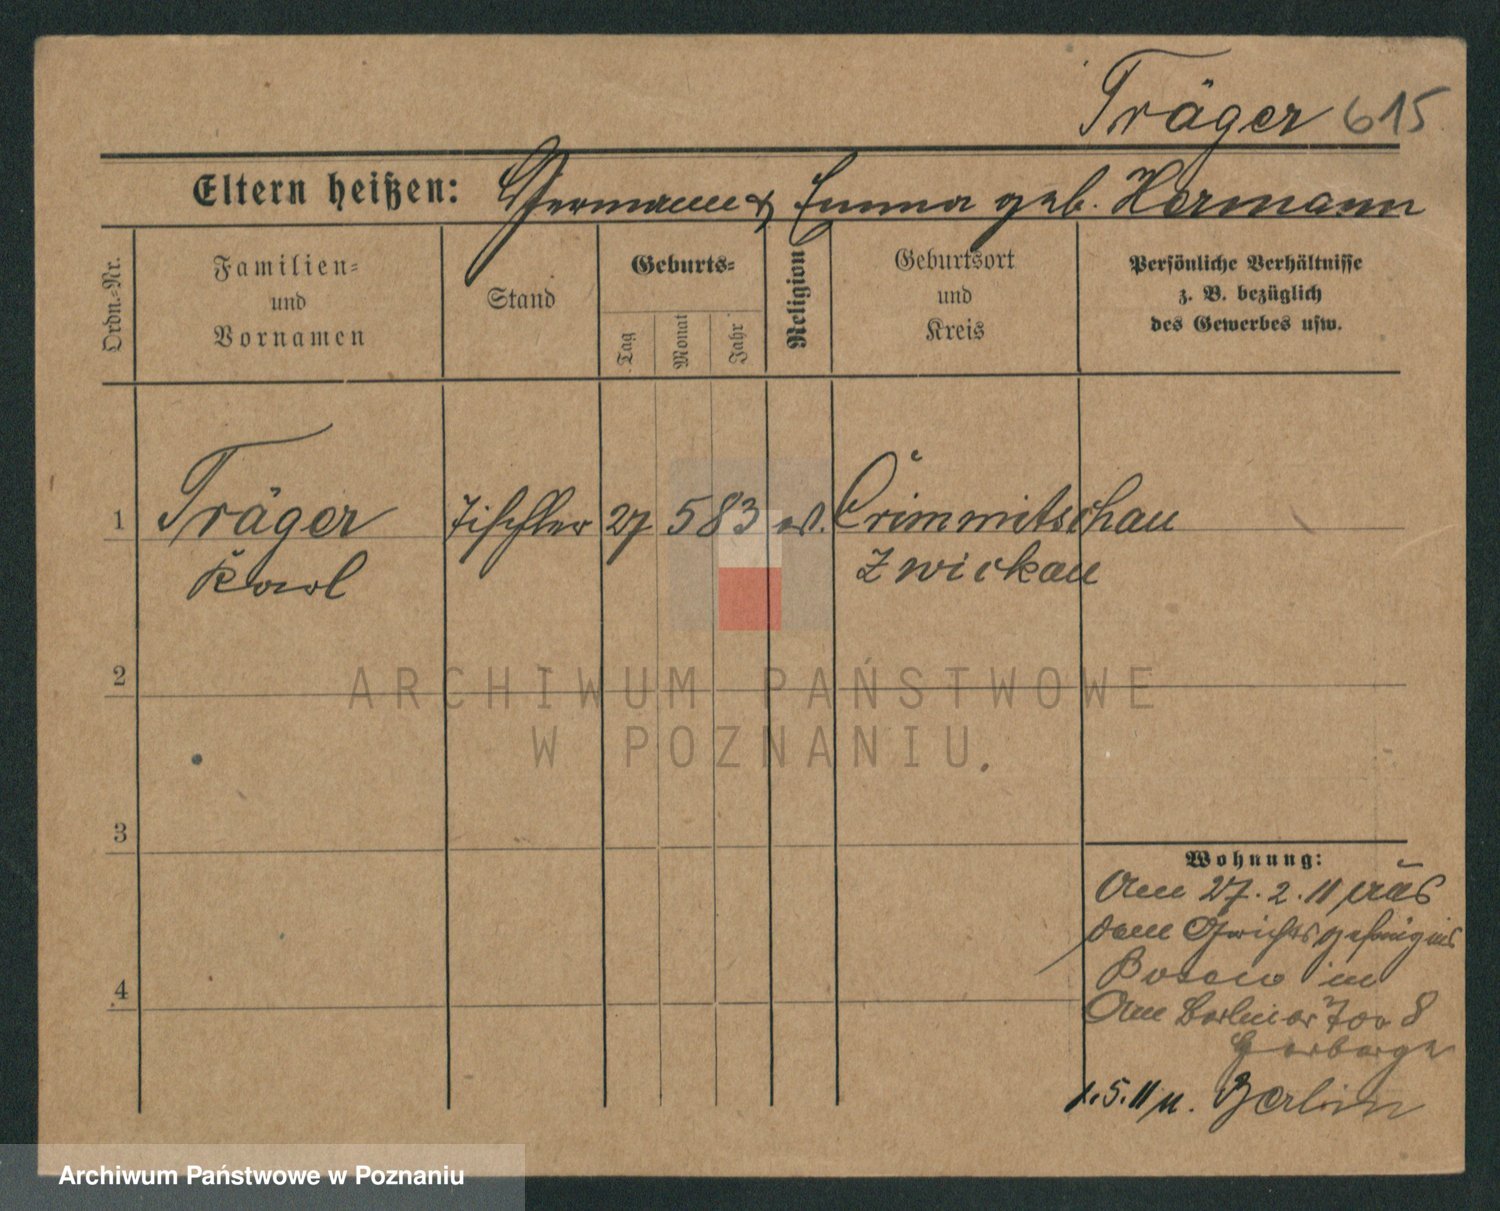 Träger 615
Eltern heißen: Hermann & Emma geb. Hermann
Ordn.-Nr.
Familien-
und
Vornamen
Stand
Geburts-
Tag
Monat
Jahr
Religion
Geburtsort
und
Kreis
Persönliche Verhältnisse
z. B. bezüglich
des Gewerbes usw.
1 Träger Tischler 27 5 83 ev. Crimmitschau
Karl Zwickau
2
3
4
ARCHIWUM PAŃSTWOWE
W POZNANIU
Wohnung:
Am 27.2.11 aus
dem Gerichtsgefängnis
Posen in
Am Berliner Tor 8
Herberge
1.5.11 n. Berlin
Archiwum Państwowe w Poznaniu